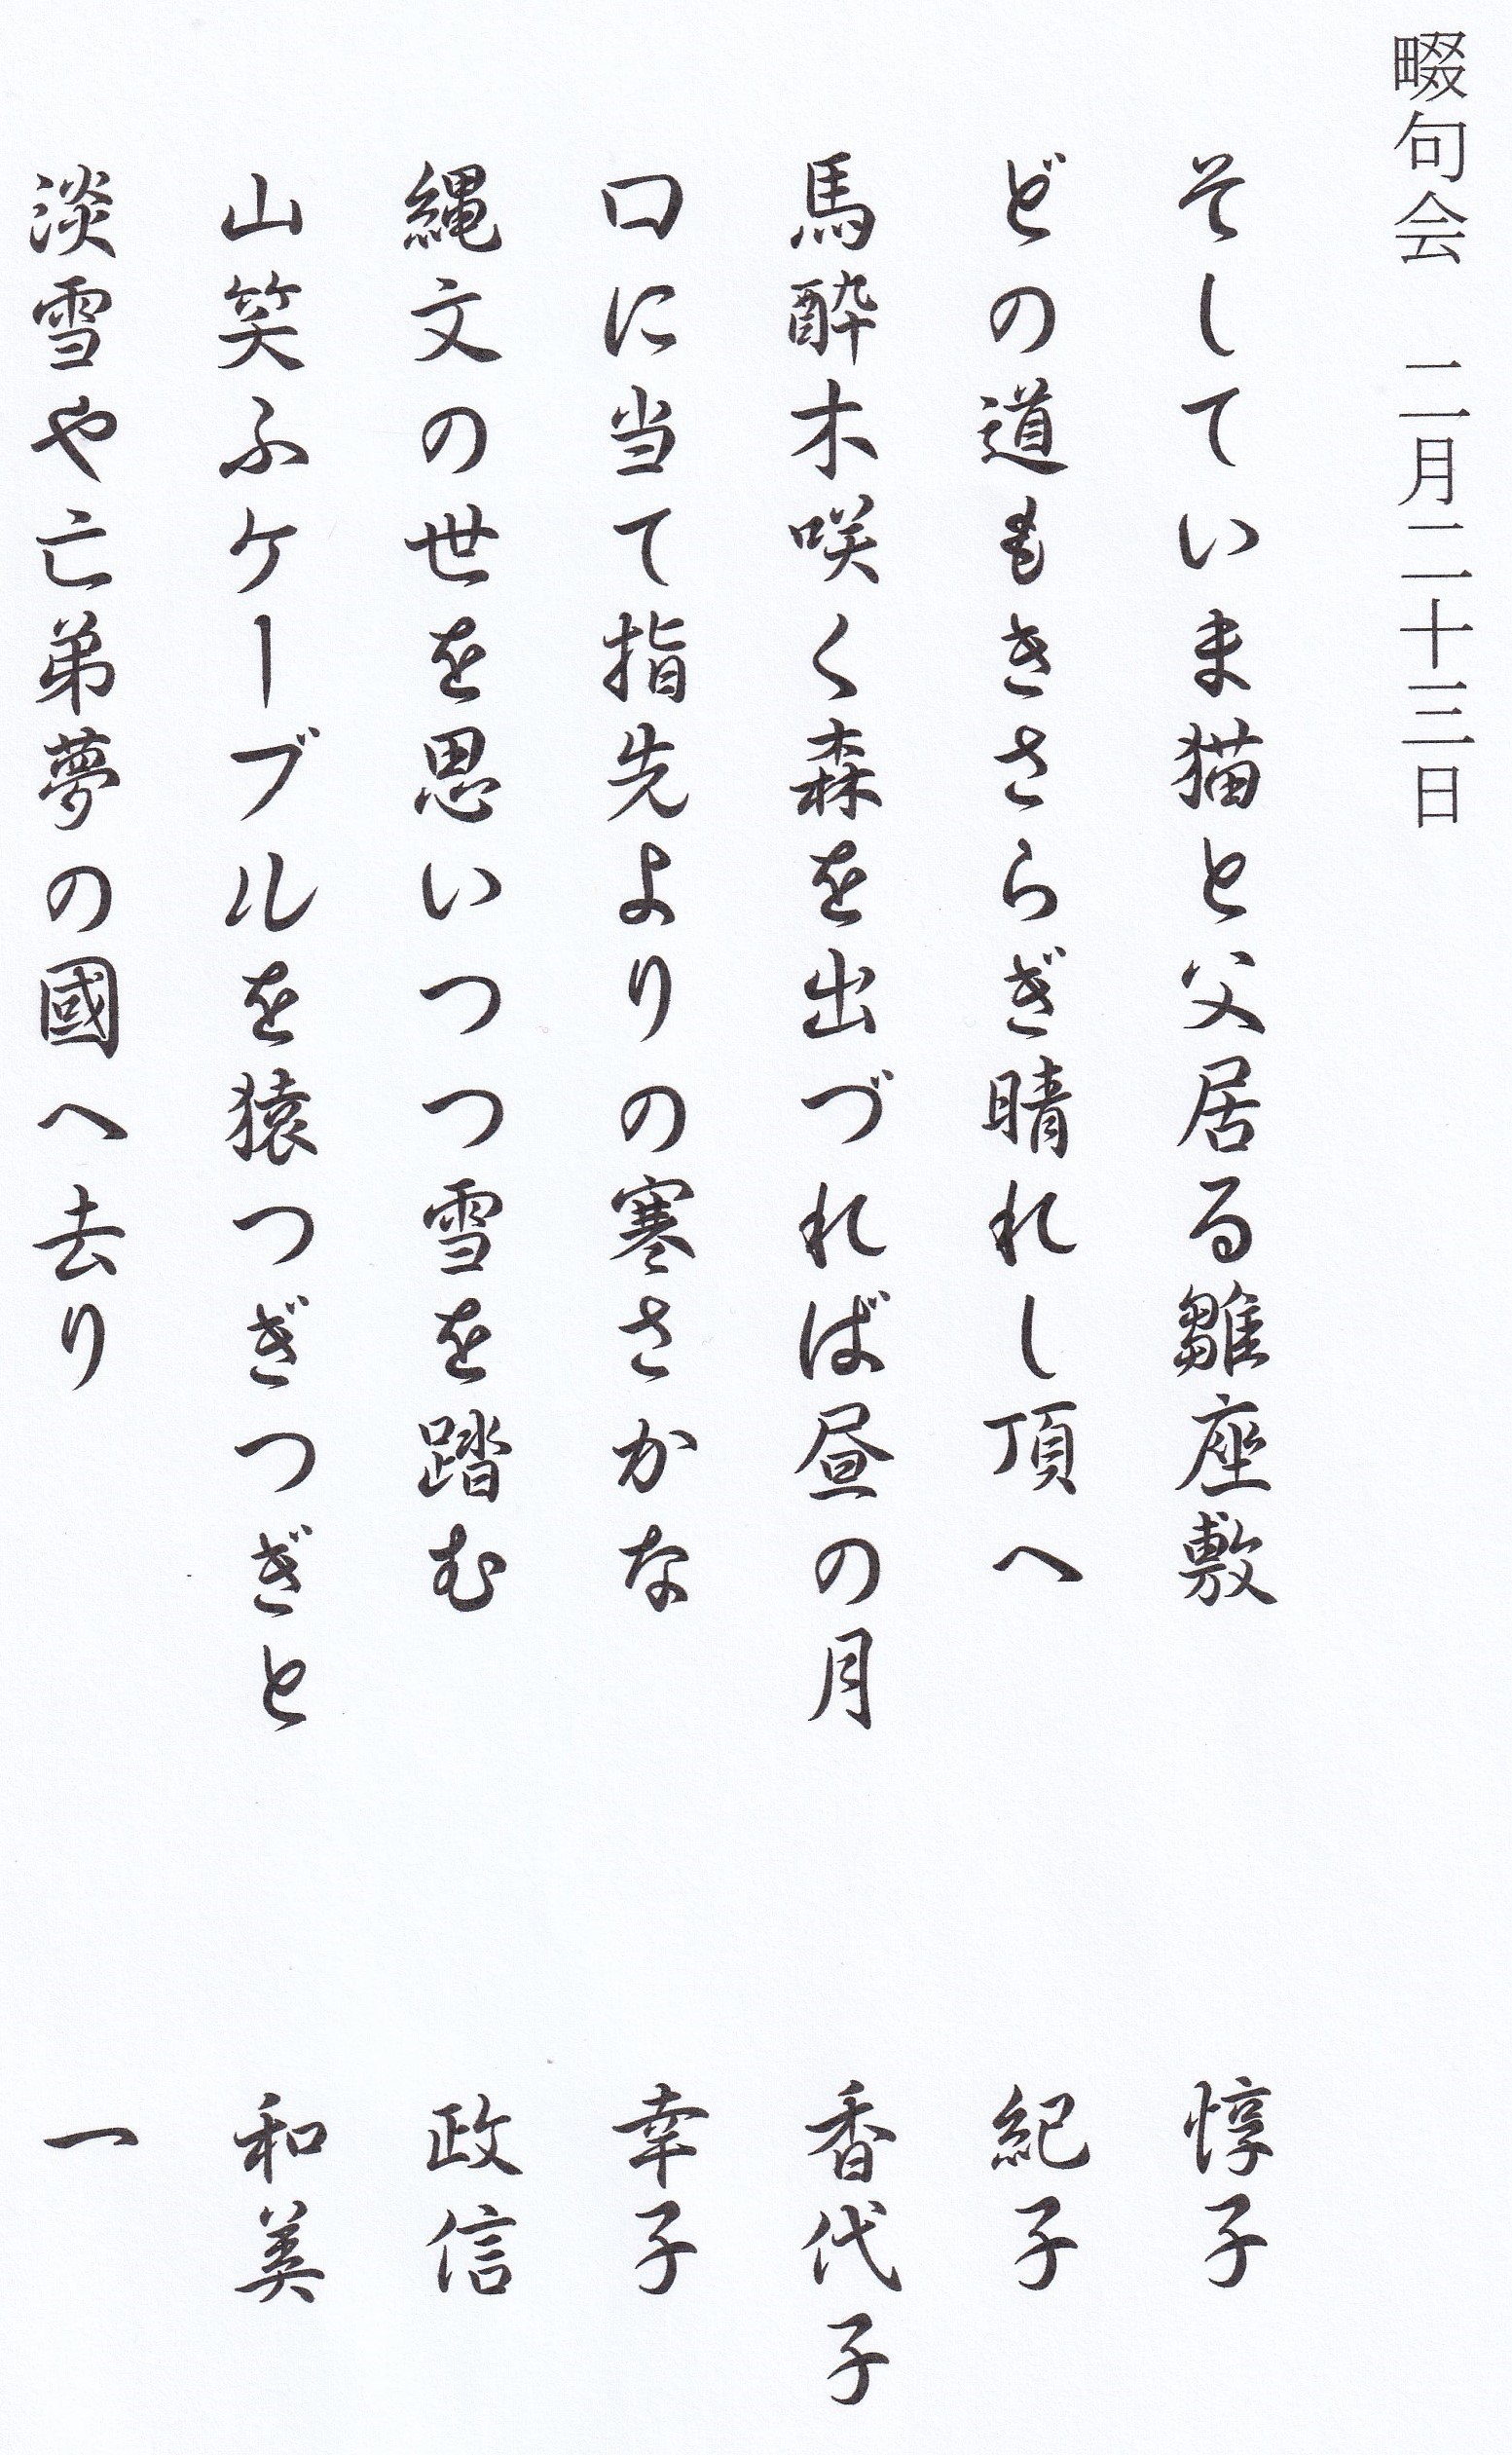 畷句会　二月二十三日
そしていま猫と父居る雛座敷　惇子
どの道もきさらぎ晴れし頂へ　紀子
馬酔木咲く森を出づれば昼の月　香代子
口に当て指先よりの寒さかな　幸子
縄文の世を思いつつ雪を踏む　政信
山笑ふケーブルを猿つぎつぎと　和美
淡雪や亡弟夢の國へ去り　一